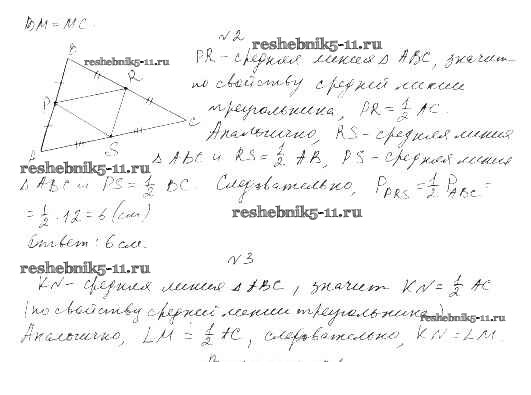 BM = MC.
№2
PR - средняя линия Δ ABC, значит
по свойству средней линии
треугольника, PR = 1/2 AC.
Аналогично, RS - средняя линия
Δ ABC и RS = 1/2 AB, PS - средняя линия
Δ ABC и PS = 1/2 BC. Следовательно, P_PRS = 1/2 P_ABC =
= 1/2 · 12 = 6 (см)
Ответ: 6 см.
№3
KN - средняя линия Δ ABC, значит KN = 1/2 AC
(по свойству средней линии треугольника.)
Аналогично, LM = 1/2 AC, следовательно, KN = LM.
B
R
P
C
A
S
reshebnik5-11.ru
reshebnik5-11.ru
reshebnik5-11.ru
reshebnik5-11.ru
reshebnik5-11.ru
reshebnik5-11.ru